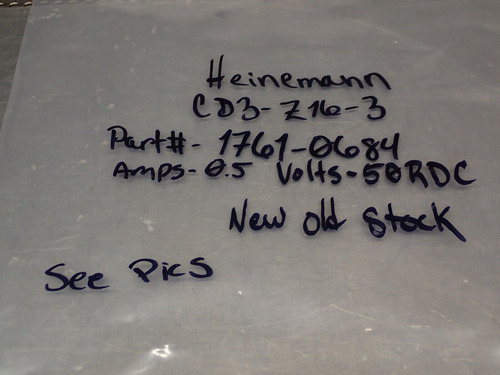 Heinemann
CD3-Z16-3
Part#- 1761-0684
Amps- 0.5 Volts-50RDC
New old Stock
See Pics